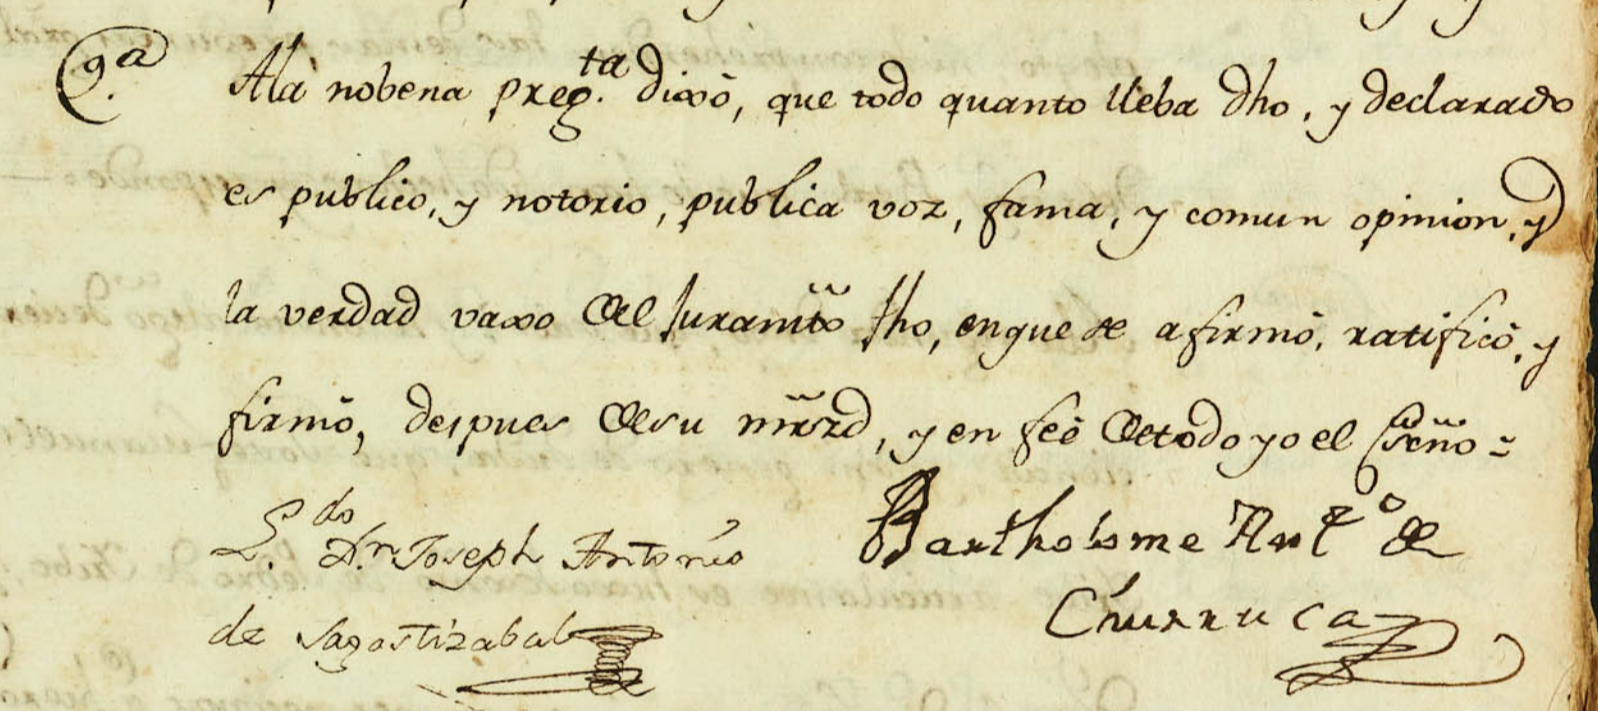 9.ª
Ala nobena preg.ta dixo, que todo quanto lleba dho, y declarado
es publico, y notorio, publica voz, fama, y comun opinion, y
la verdad vaxo del Juramto fho, en que se afirmó, ratificó, y
firmó, despues de su mrzd, y en feé de todo yo el essno =
L.do Dn. Joseph Antonio
de Sagastizabal
Bartholome Antº de
Churruca